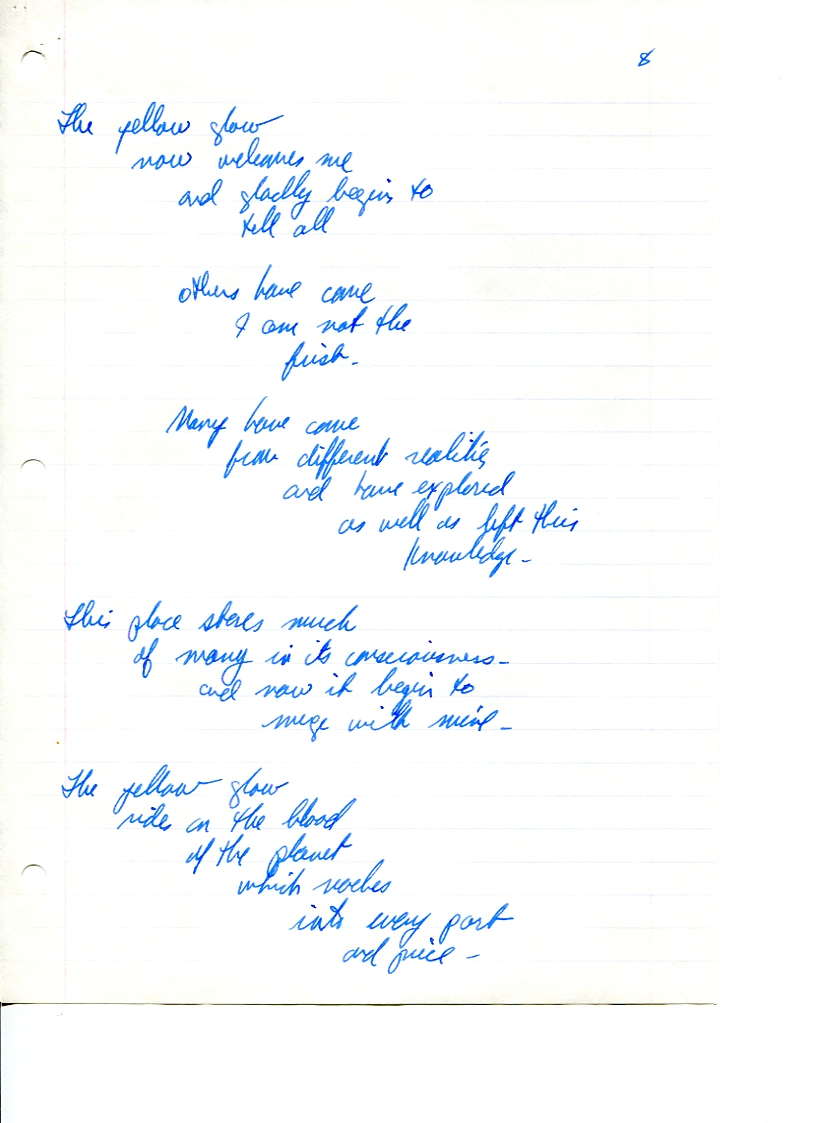 8
The yellow glow
now welcomes me
and gladly begins to
tell all
others have come
I am not the
first.
Many have come
from different realities
and have explored
as well as left their
knowledge -
This place stores much
of many in its consciousness -
and now it begin to
merge with mine -
The yellow glow
rides on the blood
of the planet
which reaches
into every part
and piece -